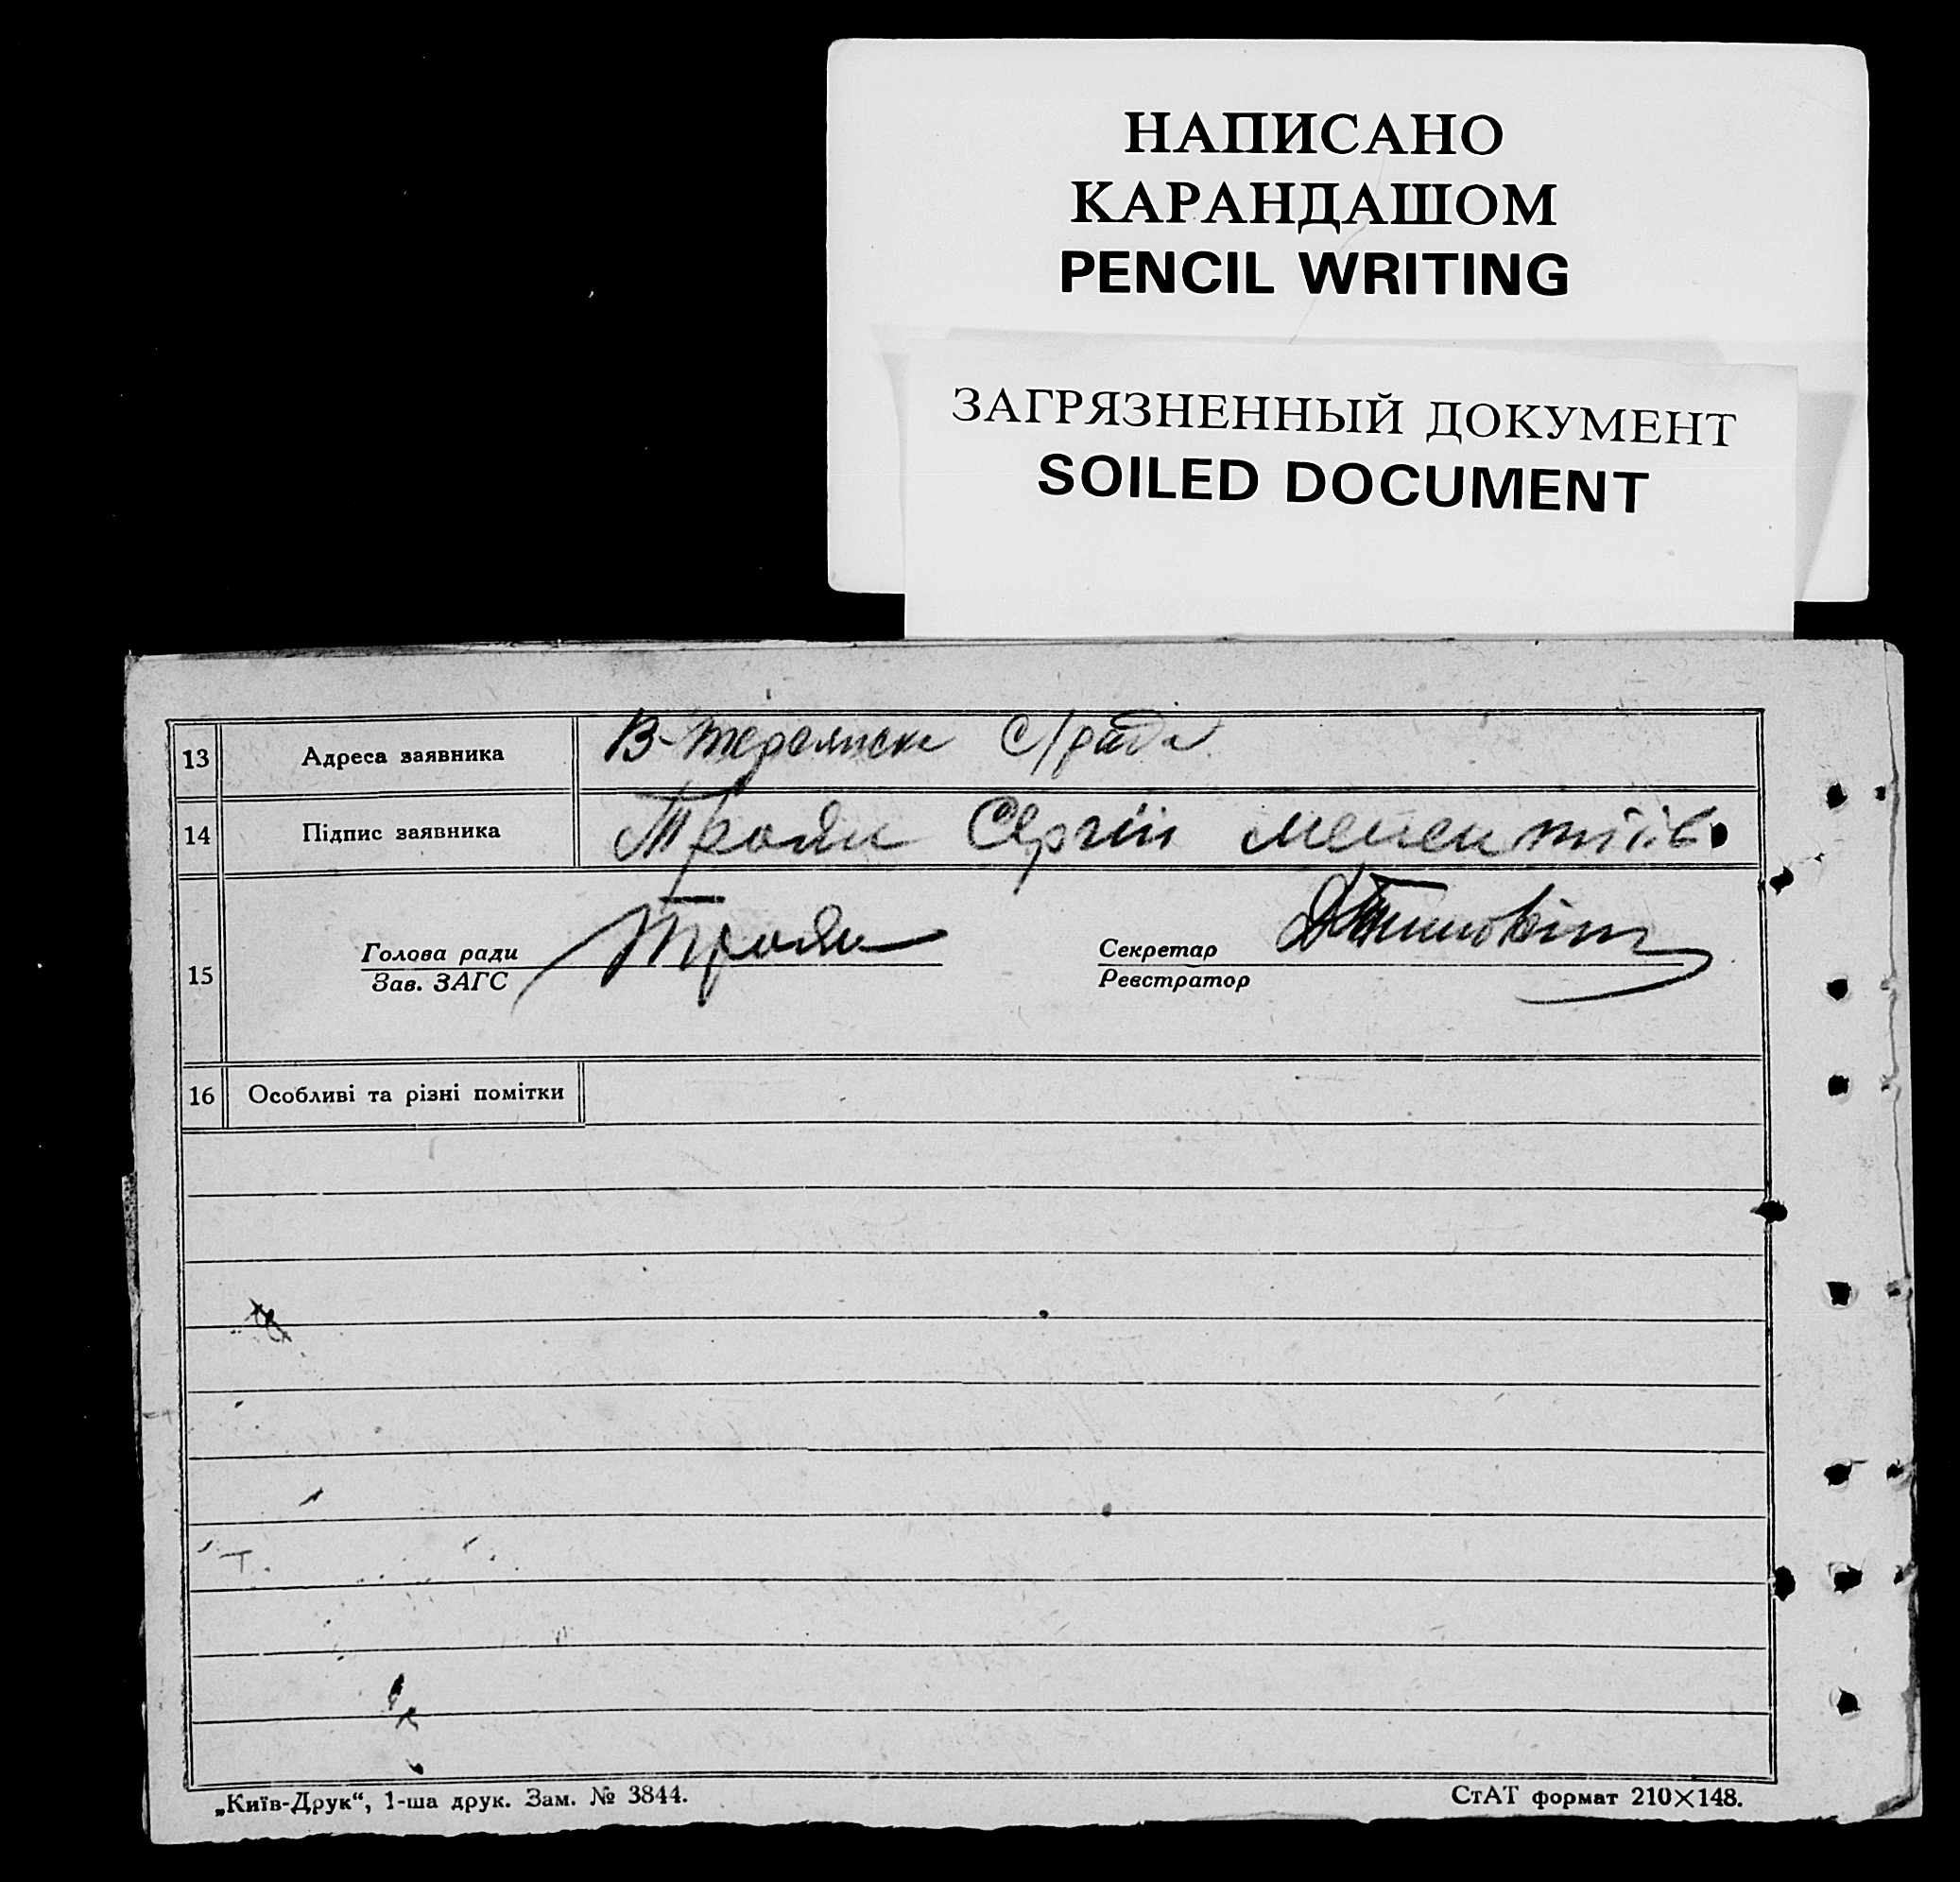 НАПИСАНО
КАРАНДАШОМ
PENCIL WRITING
ЗАГРЯЗНЕННЫЙ ДОКУМЕНТ
SOILED DOCUMENT
13 Адреса заявника С/рада
14 Підпис заявника Троян Сергій
Голова ради Троян Секретар
15
Зав. ЗАГС Реєстратор
16 Особливі та різні помітки
„Київ-Друк“, 1-ша друк. Зам. № 3844. СтАТ формат 210×148.